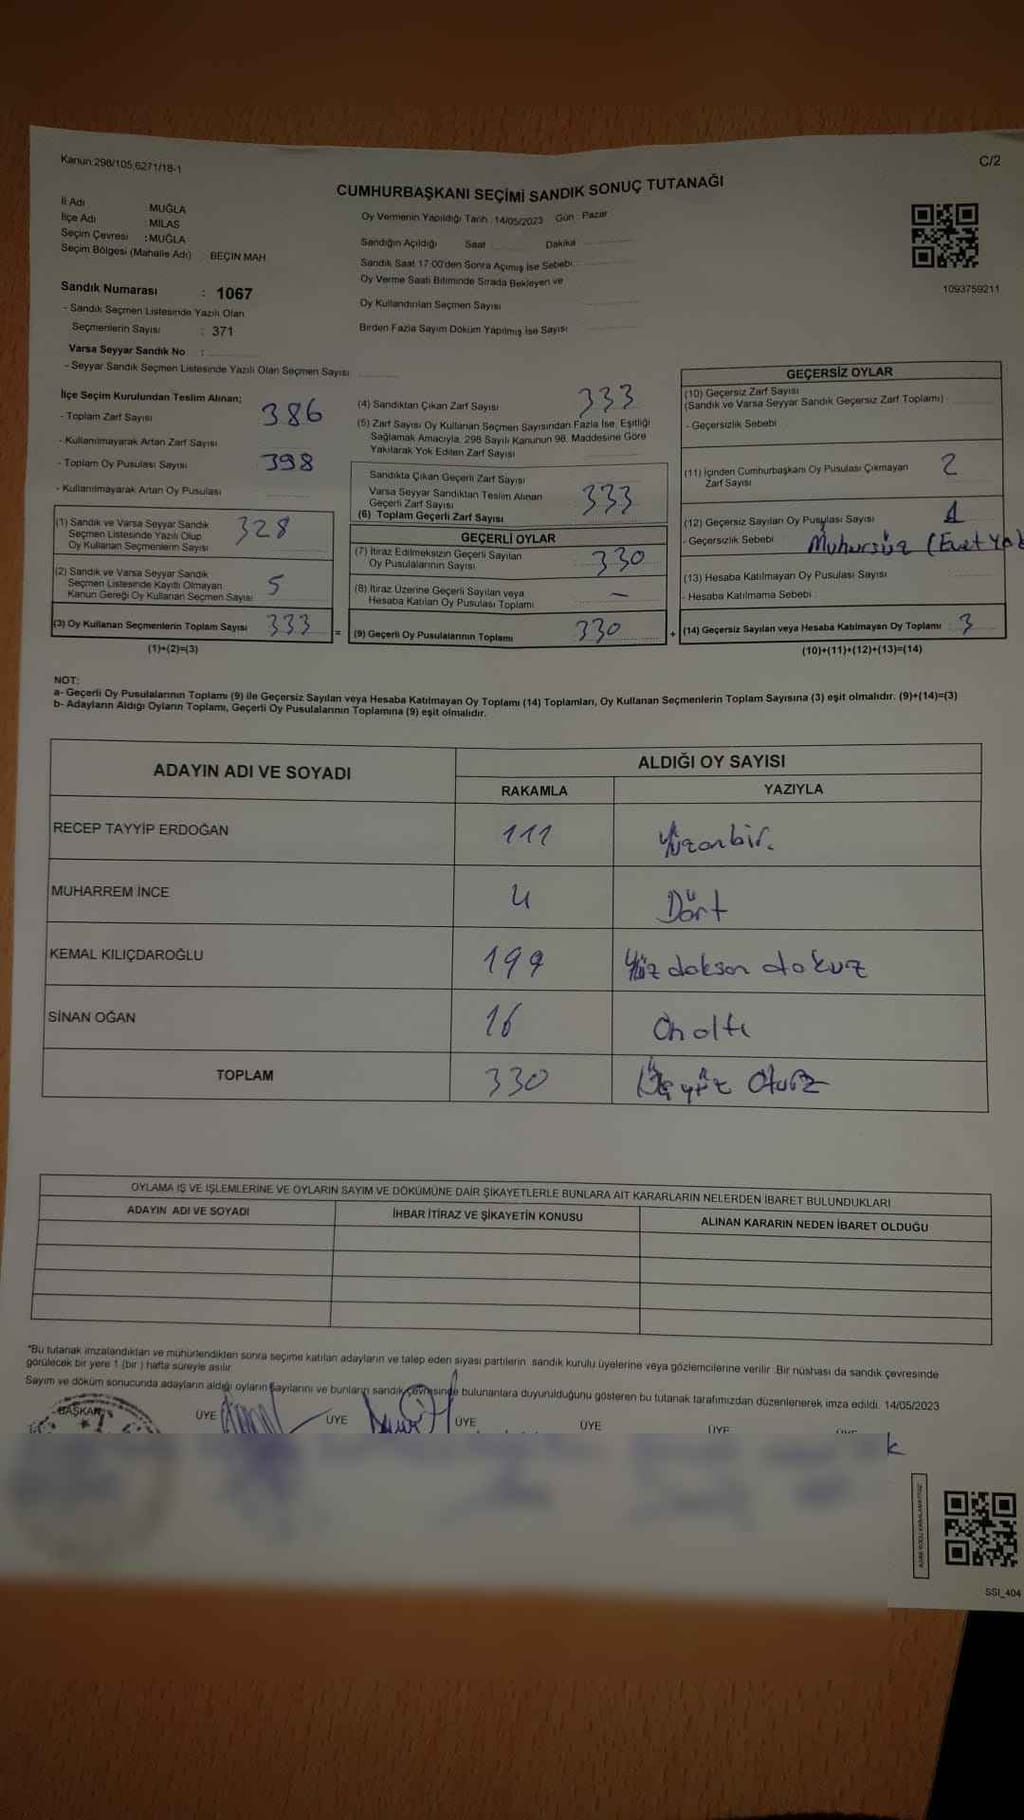 Kanun:298/105,6271/18-1
C/2
CUMHURBAŞKANI SEÇİMİ SANDIK SONUÇ TUTANAĞI
İl Adı MUĞLA
İlçe Adı : MİLAS
Seçim Çevresi :MUĞLA
Seçim Bölgesi (Mahalle Adı) : BEÇİN MAH
Oy Vermenin Yapıldığı Tarih : 14/05/2023 Gün : Pazar
Sandığın Açıldığı Saat Dakika
Sandık Saat 17:00'den Sonra Açılmış İse Sebebi:
Oy Verme Saati Bitiminde Sırada Bekleyen ve
Oy Kullandırılan Seçmen Sayısı
Birden Fazla Sayım Döküm Yapılmış İse Sayısı
1093759211
Sandık Numarası : 1067
- Sandık Seçmen Listesinde Yazılı Olan
Seçmenlerin Sayısı : 371
Varsa Seyyar Sandık No :
- Seyyar Sandık Seçmen Listesinde Yazılı Olan Seçmen Sayısı
İlçe Seçim Kurulundan Teslim Alınan;
- Toplam Zarf Sayısı 386
- Kullanılmayarak Artan Zarf Sayısı
- Toplam Oy Pusulası Sayısı 398
- Kullanılmayarak Artan Oy Pusulası
(1) Sandık ve Varsa Seyyar Sandık
Seçmen Listesinde Yazılı Olup
Oy Kullanan Seçmenlerin Sayısı 328
(2) Sandık ve Varsa Seyyar Sandık
Seçmen Listesinde Kayıtlı Olmayan
Kanun Gereği Oy Kullanan Seçmen Sayısı 5
(3) Oy Kullanan Seçmenlerin Toplam Sayısı 333
(1)+(2)=(3)
=
(4) Sandıktan Çıkan Zarf Sayısı 333
(5) Zarf Sayısı Oy Kullanan Seçmen Sayısından Fazla İse, Eşitliği
Sağlamak Amacıyla, 298 Sayılı Kanunun 98. Maddesine Göre
Yakılarak Yok Edilen Zarf Sayısı
Sandıkta Çıkan Geçerli Zarf Sayısı
Varsa Seyyar Sandıktan Teslim Alınan
Geçerli Zarf Sayısı
(6) Toplam Geçerli Zarf Sayısı 333
GEÇERLİ OYLAR
(7) İtiraz Edilmeksizin Geçerli Sayılan
Oy Pusulalarının Sayısı 330
(8) İtiraz Üzerine Geçerli Sayılan veya
Hesaba Katılan Oy Pusulası Toplamı -
(9) Geçerli Oy Pusulalarının Toplamı 330
+
GEÇERSİZ OYLAR
(10) Geçersiz Zarf Sayısı
(Sandık ve Varsa Seyyar Sandık Geçersiz Zarf Toplamı)
- Geçersizlik Sebebi
(11) İçinden Cumhurbaşkanı Oy Pusulası Çıkmayan
Zarf Sayısı 2
(12) Geçersiz Sayılan Oy Pusulası Sayısı 1
- Geçersizlik Sebebi Mühürsüz (Evet Yok
(13) Hesaba Katılmayan Oy Pusulası Sayısı
- Hesaba Katılmama Sebebi
(14) Geçersiz Sayılan veya Hesaba Katılmayan Oy Toplamı : 3
(10)+(11)+(12)+(13)=(14)
NOT:
a- Geçerli Oy Pusulalarının Toplamı (9) ile Geçersiz Sayılan veya Hesaba Katılmayan Oy Toplamı (14) Toplamları, Oy Kullanan Seçmenlerin Toplam Sayısına (3) eşit olmalıdır. (9)+(14)=(3)
b- Adayların Aldığı Oyların Toplamı, Geçerli Oy Pusulalarının Toplamına (9) eşit olmalıdır.
ADAYIN ADI VE SOYADI ALDIĞI OY SAYISI
RAKAMLA YAZIYLA
RECEP TAYYİP ERDOĞAN 111 Yüzonbir.
MUHARREM İNCE 4 Dört
KEMAL KILIÇDAROĞLU 199 Yüz doksan dokuz
SİNAN OĞAN 16 Onaltı
TOPLAM 330 Üçyüz Otuz
OYLAMA İŞ VE İŞLEMLERİNE VE OYLARIN SAYIM VE DÖKÜMÜNE DAİR ŞİKAYETLERLE BUNLARA AİT KARARLARIN NELERDEN İBARET BULUNDUKLARI
ADAYIN ADI VE SOYADI İHBAR İTİRAZ VE ŞİKAYETİN KONUSU ALINAN KARARIN NEDEN İBARET OLDUĞU
*Bu tutanak imzalandıktan ve mühürlendikten sonra seçime katılan adayların ve talep eden siyasi partilerin sandık kurulu üyelerine veya gözlemcilerine verilir. Bir nüshası da sandık çevresinde
görülecek bir yere 1 (bir) hafta süreyle asılır.
Sayım ve döküm sonucunda adayların aldığı oyların sayılarını ve bunların sandık çevresinde bulunanlara duyurulduğunu gösteren bu tutanak tarafımızdan düzenlenerek imza edildi. 14/05/2023
BAŞKAN ÜYE ÜYE ÜYE ÜYE ÜYE
SSI_404